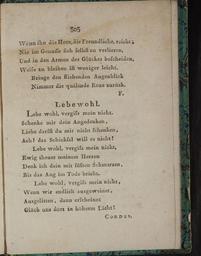 305
Wenn ihn die Hore, die Freundliche, reicht;
Nie im Genusse sich selbst zu verlieren,
Und in den Armen des Glückes bescheiden,
Weise zu bleiben ist weniger leicht.
Bringe den fliehenden Augenblick
Nimmer die quälende Reue zurück.
F.
Lebewohl.
Lebe wohl, vergiſs mein nicht.
Schenke mir dein Angedenken,
Liebe darfst du mir nicht schenken,
Ach! das Schicksal will es nicht!
Lebe wohl, vergiſs mein nicht,
Ewig theuer meinem Herzen
Denk ich dein mit süſsen Schmerzen,
Bis das Aug im Tode bricht.
Lebe wohl, vergiſs mein nicht,
Wenn wir endlich ausgeweinet,
Ausgelitten, dann erscheinet
Glück uns dort in höherm Licht!
Cordes.